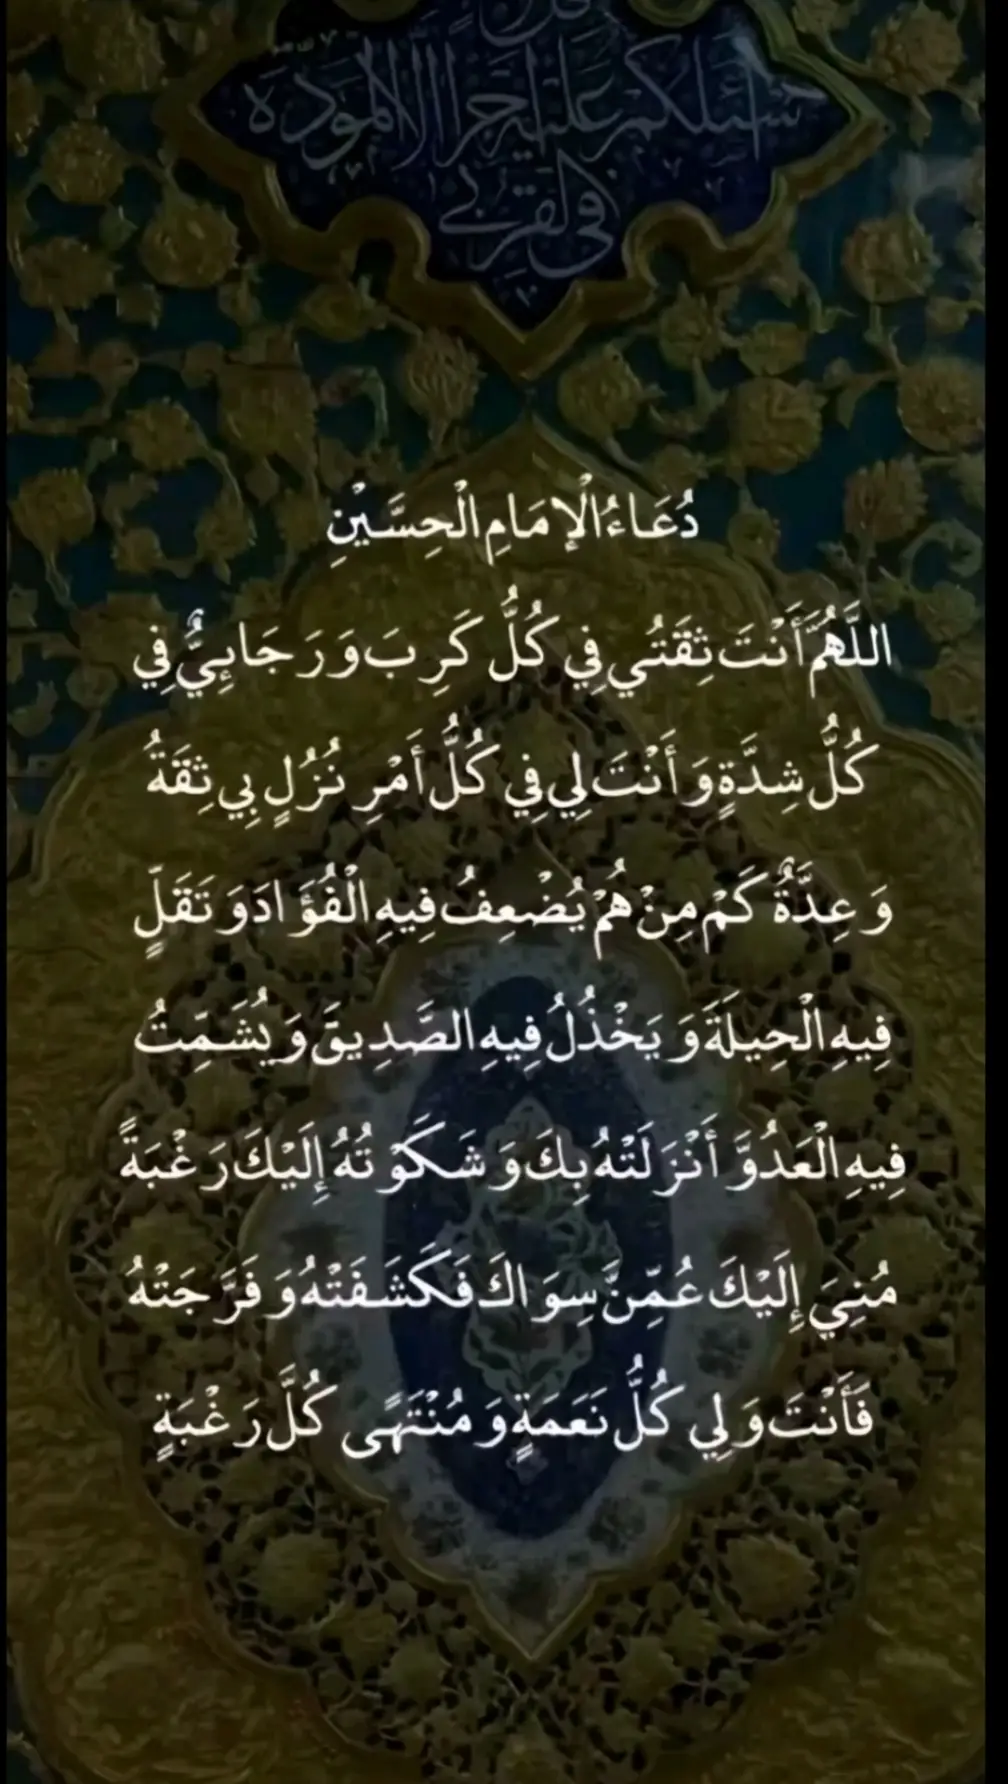 سئلكم علیه اجرا الا الموده
فی القربی
دُعَاءُ الْإِمَامِ الْحِسَّيْنِ
اللَّهُمَّ أَنْتَ ثِقَتُي فِي كُلُّ كَرِبَ وَ رَجَائِيٌّ فِي
كُلُّ شِدَّةٍ وَ أَنْتَ لِي فِي كُلُّ أَمْرِ نُزُلٍ بِي ثِقَةُ
وَ عِدَّةٌ كَمْ مِنْ هُمْ يُضْعِفُ فِيهِ الْفُؤَادَ وَ تَقَلِّ
فِيهِ الْحِيلَةَ وَ يَخْذُلُ فِيهِ الصَّدِيقَ وَ يُشَمِّتُ
فِيهِ الْعَدُوَّ أَنْزَلَتْهُ بِكَ وَ شَكَوْتُهُ إِلَيْكَ رَغْبَةً
مُنِيَ إِلَيْكَ عُمِّنَّ سِوَاكَ فَكَشَفَتْهُ وَ فَرَّجَتْهُ
فَأَنْتَ وَلِي كُلُّ نَعَمَةٍ وَ مُنْتَهًى كُلَّ رَغْبَةٍ